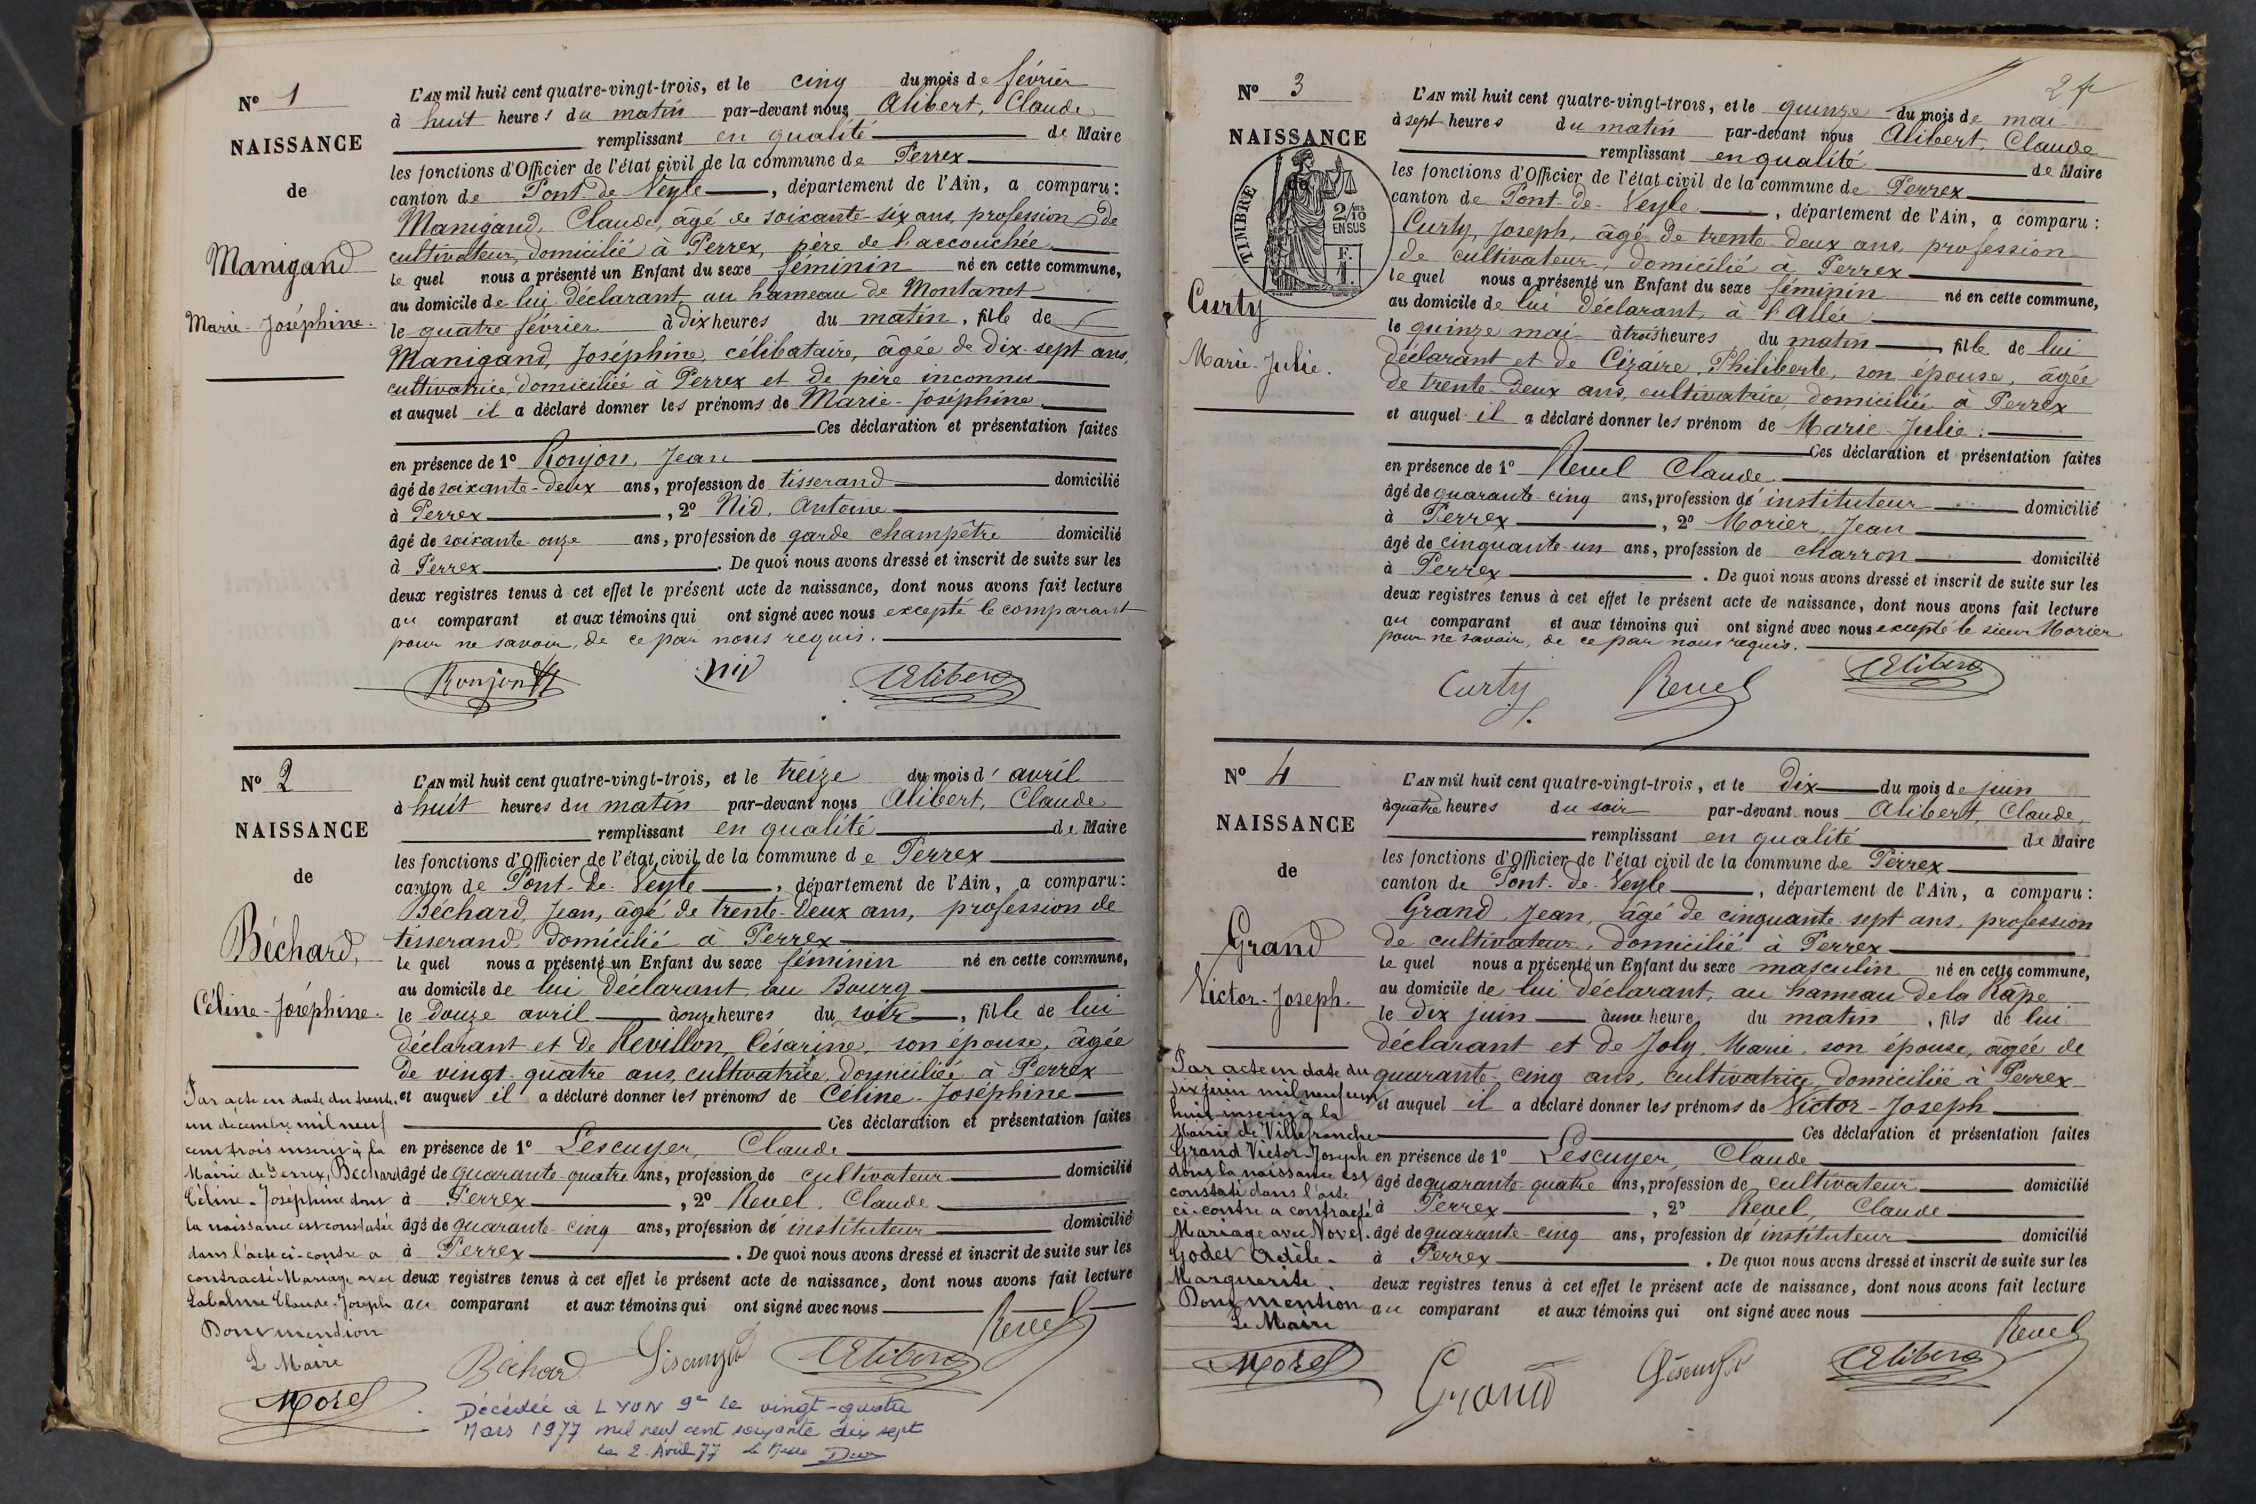 N° 1
NAISSANCE
de
Manigand
Marie-Joséphine.
L'AN mil huit cent quatre-vingt-trois, et le cinq du mois de février
à huit heures du matin par-devant nous Alibert, Claude
remplissant en qualité de Maire
les fonctions d'Officier de l'état civil de la commune de Perrex
canton de Pont-de-Veyle, département de l'Ain, a comparu:
Manigand, Claude, âgé de soixante-six ans, profession de
cultivateur, domicilié à Perrex, père de l'accouchée
le quel nous a présenté un Enfant du sexe féminin né en cette commune,
au domicile de lui déclarant, au hameau de Montanet
le quatre février à dix heures du matin, fille de
Manigand, Joséphine, célibataire, âgée de dix-sept ans,
cultivatrice, domiciliée à Perrex et de père inconnu
et auquel il a déclaré donner les prénoms de Marie-Joséphine.
Ces déclaration et présentation faites
en présence de 1° Ronjon, Jean
âgé de soixante-deux ans, profession de tisserand domicilié
à Perrex, 2° Nid, Antoine
âgé de soixante onze ans, profession de garde champêtre domicilié
à Perrex. De quoi nous avons dressé et inscrit de suite sur les
deux registres tenus à cet effet le présent acte de naissance, dont nous avons fait lecture
au comparant et aux témoins qui ont signé avec nous excepté le comparant
pour ne savoir, de ce par nous requis.
Ronjon Nid Alibert
N° 2
NAISSANCE
de
Béchard,
Céline-Joséphine.
L'AN mil huit cent quatre-vingt-trois, et le treize du mois d'avril
à huit heures du matin par-devant nous Alibert, Claude
remplissant en qualité de Maire
les fonctions d'Officier de l'état civil de la commune de Perrex
canton de Pont-de-Veyle, département de l'Ain, a comparu:
Béchard, Jean, âgé de trente-deux ans, profession de
tisserand, domicilié à Perrex
le quel nous a présenté un Enfant du sexe féminin né en cette commune,
au domicile de lui déclarant, au Bourg
le douze avril à onze heures du soir, fille de lui
déclarant et de Revillon, Césarine, son épouse, âgée
de vingt-quatre ans, cultivatrice, domiciliée à Perrex
et auquel il a déclaré donner les prénoms de Céline-Joséphine
Ces déclaration et présentation faites
en présence de 1° Lescuyer, Claude
âgé de quarante-quatre ans, profession de cultivateur domicilié
à Perrex, 2° Revel, Claude
âgé de quarante-cinq ans, profession de instituteur domicilié
à Perrex. De quoi nous avons dressé et inscrit de suite sur les
deux registres tenus à cet effet le présent acte de naissance, dont nous avons fait lecture
au comparant et aux témoins qui ont signé avec nous
Béchard Lescuyer Alibert Revel
Par acte en date du trente
un décembre mil neuf
cent trois inscrit à la
Mairie de Perrex, Béchard
Céline-Joséphine dont
la naissance est constatée
dans l'acte ci-contre a
contracté Mariage avec
Labalme Claude-Joseph
Dont mention
Le Maire
Morel
Décédée à LYON 9e le vingt-quatre
Mars 1977 mil neuf cent soixante dix sept
Le 2 Avril 77 Le Maire
2 f
N° 3
NAISSANCE
de
TIMBRE
2/10
EN SUS
F.
1.
Curty
Marie-Julie.
L'AN mil huit cent quatre-vingt-trois, et le quinze du mois de mai
à sept heures du matin par-devant nous Alibert, Claude
remplissant en qualité de Maire
les fonctions d'Officier de l'état civil de la commune de Perrex
canton de Pont-de-Veyle, département de l'Ain, a comparu:
Curty, Joseph, âgé de trente-deux ans, profession
de cultivateur, domicilié à Perrex
le quel nous a présenté un Enfant du sexe féminin né en cette commune,
au domicile de lui déclarant, à l'Allée
le quinze mai à trois heures du matin, fille de lui
déclarant et de Cizaire, Philiberte, son épouse, âgée
de trente-deux ans, cultivatrice, domiciliée à Perrex
et auquel il a déclaré donner les prénom de Marie-Julie.
Ces déclaration et présentation faites
en présence de 1° Revel Claude
âgé de quarante-cinq ans, profession d'instituteur domicilié
à Perrex, 2° Morier, Jean
âgé de cinquante-un ans, profession de charron domicilié
à Perrex. De quoi nous avons dressé et inscrit de suite sur les
deux registres tenus à cet effet le présent acte de naissance, dont nous avons fait lecture
au comparant et aux témoins qui ont signé avec nous excepté le sieur Morier
pour ne savoir, de ce par nous requis.
Curty J. Revel Alibert
N° 4
NAISSANCE
de
Grand
Victor-Joseph.
L'AN mil huit cent quatre-vingt-trois, et le dix du mois de juin
à quatre heures du soir par-devant nous Alibert, Claude,
remplissant en qualité de Maire
les fonctions d'Officier de l'état civil de la commune de Perrex
canton de Pont-de-Veyle, département de l'Ain, a comparu:
Grand, Jean, âgé de cinquante-sept ans, profession
de cultivateur, domicilié à Perrex
le quel nous a présenté un Enfant du sexe masculin né en cette commune,
au domicile de lui déclarant, au hameau de la Râpe
le dix juin à une heure du matin, fils de lui
déclarant et de Joly, Marie, son épouse, âgée de
quarante-cinq ans, cultivatrice, domiciliée à Perrex
et auquel il a déclaré donner les prénoms de Victor-Joseph
Ces déclaration et présentation faites
en présence de 1° Lescuyer, Claude
âgé de quarante-quatre ans, profession de cultivateur domicilié
à Perrex, 2° Revel, Claude
âgé de quarante-cinq ans, profession d'instituteur domicilié
à Perrex. De quoi nous avons dressé et inscrit de suite sur les
deux registres tenus à cet effet le présent acte de naissance, dont nous avons fait lecture
au comparant et aux témoins qui ont signé avec nous
Grand Lescuyer Alibert Revel
Par acte en date du
dix juin mil neuf cent
huit inscrit à la
Mairie de Villefranche
Grand Victor-Joseph
dont la naissance est
constaté dans l'acte
ci-contre a contracté
Mariage avec Novel-
Godet Adèle-
Marguerite.
Dont mention
Le Maire
Morel